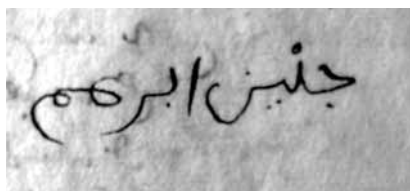 جنين ابرهم